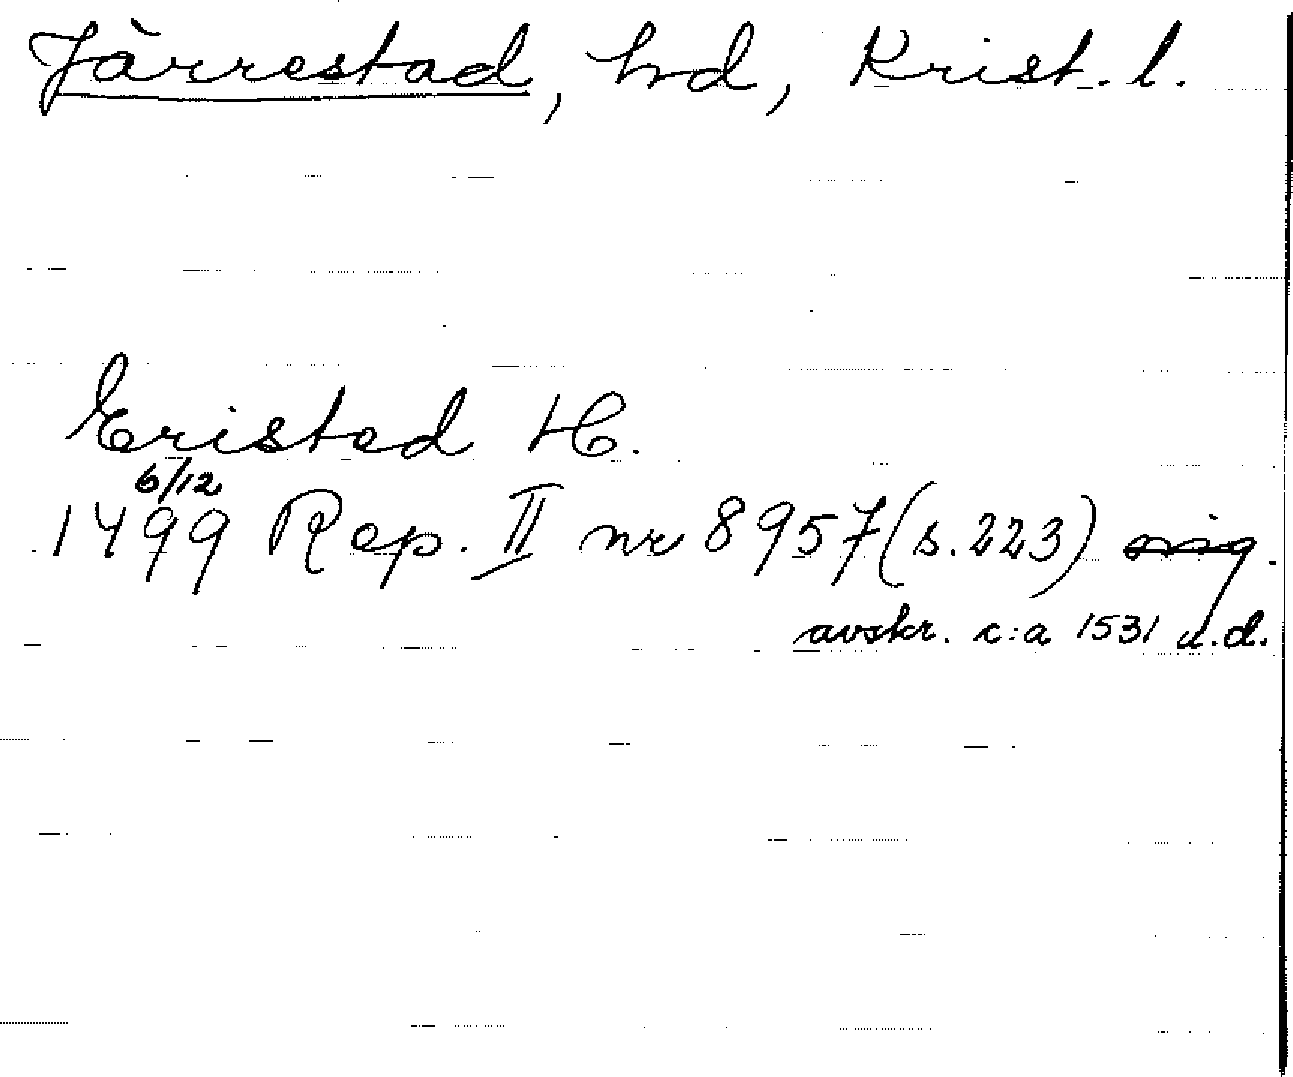 Järrestad, hd, Krist. l.
Eristed H.
6/12
1499 Rep. II nr 8957 (s. 223) orig.
avskr. c:a 1531 u.d.